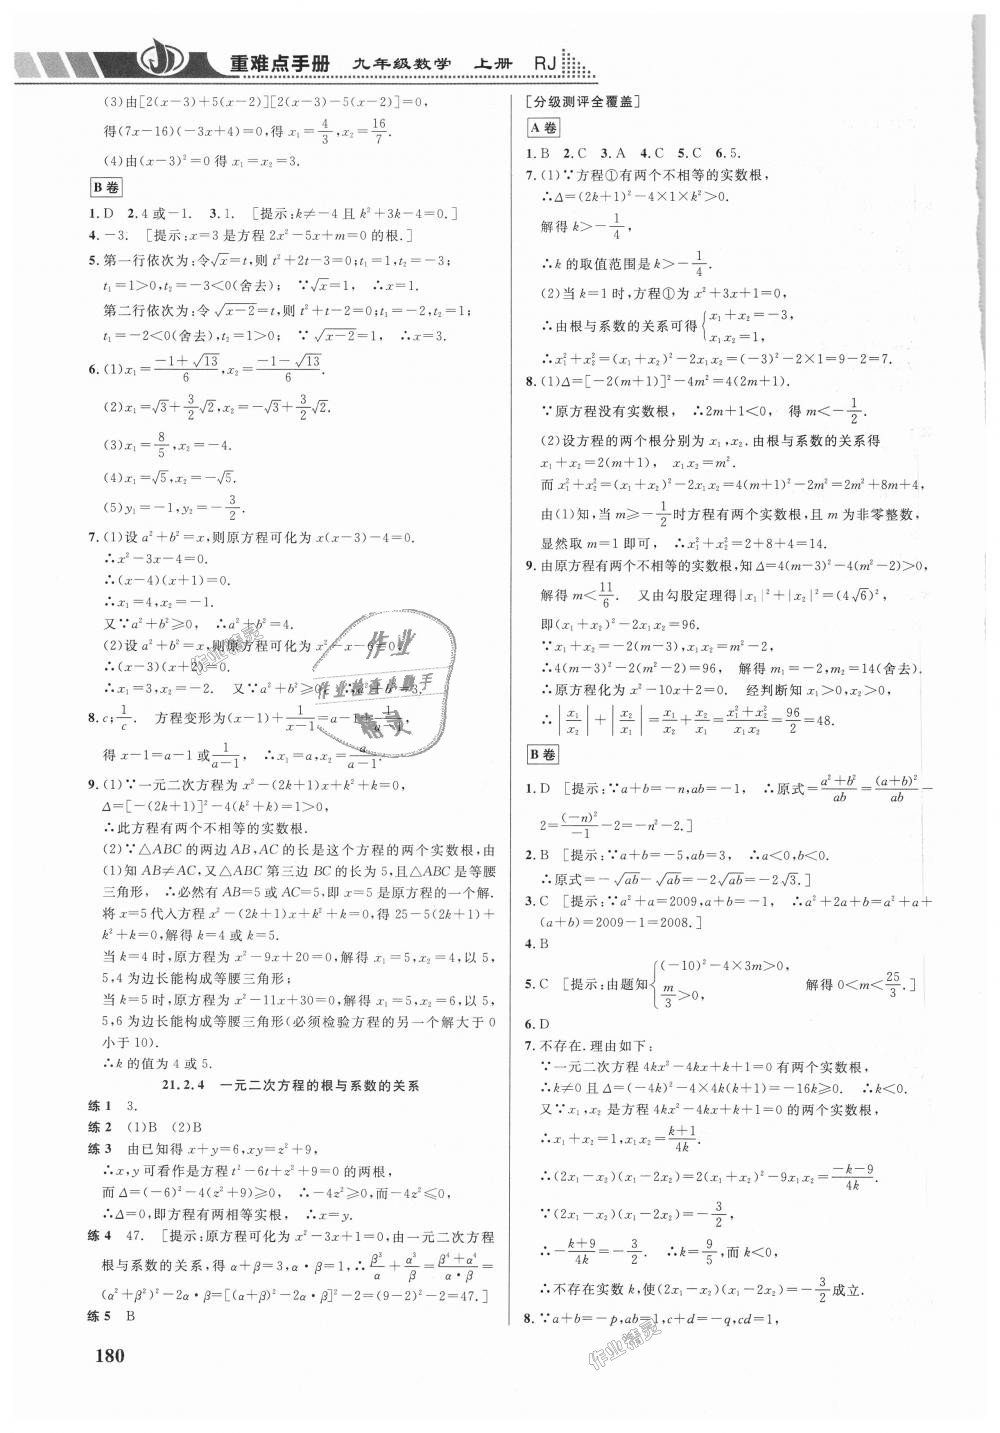 重难点手册 九年级数学 上册 RJ
(3)由[2(x-3)+5(x-2)][2(x-3)-5(x-2)]=0,
得(7x-16)(-3x+4)=0,得 x₁=4/3,x₂=16/7.
(4)由(x-3)²=0 得 x₁=x₂=3.
B 卷
1. D 2. 4 或-1. 3. 1. [提示:k≠-4 且 k²+3k-4=0.]
4. -3. [提示:x=3 是方程 2x²-5x+m=0 的根.]
5. 第一行依次为:令√x=t,则 t²+2t-3=0;t₁=1,t₂=-3;
t₁=1>0,t₂=-3<0(舍去); ∵√x=1, ∴x=1.
第二行依次为:令 √(x-2)=t,则 t²+t-2=0;t₁=-2,t₂=1;
t₁=-2<0(舍去),t₂=1>0; ∵ √(x-2)=1, ∴x=3.
6. (1)x₁=(-1+√13)/6,x₂=(-1-√13)/6.
(2)x₁=√3+3/2√2,x₂=-√3+3/2√2.
(3)x₁=8/5,x₂=-4.
(4)x₁=√5,x₂=-√5.
(5)y₁=-1,y₂=-3/2.
7. (1)设 a²+b²=x,则原方程可化为 x(x-3)-4=0.
∴x²-3x-4=0.
∴(x-4)(x+1)=0.
∴x₁=4,x₂=-1.
又∵a²+b²≥0, ∴a²+b²=4.
(2)设 a²+b²=x,则原方程可化为 x²-x-6=0.
∴(x-3)(x+2)=0.
∴x₁=3,x₂=-2. 又∵a²+b²≥0, ∴a²+b²=3.
8. c;1/c. 方程变形为(x-1)+1/(x-1)=a-1+1/(a-1),
得 x-1=a-1 或1/(a-1), ∴x₁=a,x₂=a/(a-1).
9. (1)∵一元二次方程为 x²-(2k+1)x+k²+k=0,
Δ=[-(2k+1)]²-4(k²+k)=1>0,
∴此方程有两个不相等的实数根.
(2)∵△ABC 的两边 AB,AC 的长是这个方程的两个实数根,由
(1)知 AB≠AC,又△ABC 第三边 BC 的长为 5,且△ABC 是等腰
三角形, ∴必然有 AB=5 或 AC=5,即 x=5 是原方程的一个解.
将 x=5 代入方程 x²-(2k+1)x+k²+k=0,得 25-5(2k+1)+
k²+k=0,解得 k=4 或 k=5.
当 k=4 时,原方程为 x²-9x+20=0,解得 x₁=5,x₂=4,以 5,
5,4 为边长能构成等腰三角形;
当 k=5 时,原方程为 x²-11x+30=0,解得 x₁=5,x₂=6,以 5,
5,6 为边长能构成等腰三角形(必须检验方程的另一个解大于 0
小于 10).
∴k 的值为 4 或 5.
21.2.4 一元二次方程的根与系数的关系
练 1 3.
练 2 (1)B (2)B
练 3 由已知得 x+y=6,xy=z²+9,
∴x,y 可看作是方程 t²-6t+z²+9=0 的两根,
而 Δ=(-6)²-4(z²+9)≥0, ∴-4z²≥0,而-4z²≤0,
∴Δ=0,即方程有两相等实根, ∴x=y.
练 4 47. [提示:原方程可化为 x²-3x+1=0,由一元二次方程
根与系数的关系,得 α+β=3,α·β=1,∴β³/α+α³/β=(β⁴+α⁴)/(α·β)=
(α²+β²)²-2α·β=[(α+β)²-2α·β]²-2=(9-2)²-2=47.]
练 5 B
180
[分级测评全覆盖]
A 卷
1. B 2. C 3. A 4. C 5. C 6. 5.
7. (1)∵方程①有两个不相等的实数根,
∴Δ=(2k+1)²-4×1×k²>0.
解得 k>-1/4,
∴k 的取值范围是 k>-1/4.
(2)当 k=1 时,方程①为 x²+3x+1=0,
∴由根与系数的关系可得{x₁+x₂=-3, x₁x₂=1,
∴x₁²+x₂²=(x₁+x₂)²-2x₁x₂=(-3)²-2×1=9-2=7.
8. (1)Δ=[-2(m+1)]²-4m²=4(2m+1).
∵原方程没有实数根, ∴2m+1<0, 得 m<-1/2.
(2)设方程的两个根分别为 x₁,x₂.由根与系数的关系得
x₁+x₂=2(m+1), x₁x₂=m².
而 x₁²+x₂²=(x₁+x₂)²-2x₁x₂=4(m+1)²-2m²=2m²+8m+4,
由(1)知,当 m≥-1/2时方程有两个实数根,且 m 为非零整数,
显然取 m=1 即可, ∴x₁²+x₂²=2+8+4=14.
9. 由原方程有两个不相等的实数根,知 Δ=4(m-3)²-4(m²-2)>0,
解得 m<11/6. 又由勾股定理得|x₁|²+|x₂|²=(4√6)²,
即(x₁+x₂)²-2x₁x₂=96.
∵x₁+x₂=-2(m-3),x₁x₂=m²-2,
∴4(m-3)²-2(m²-2)=96, 解得 m₁=-2,m₂=14(舍去).
∴原方程化为 x²-10x+2=0. 经判断知 x₁>0,x₂>0,
∴|x₁/x₂|+|x₂/x₁|=x₁/x₂+x₂/x₁=(x₁²+x₂²)/(x₁x₂)=96/2=48.
B 卷
1. D [提示:∵a+b=-n,ab=-1, ∴原式=(a²+b²)/ab=(a+b)²/ab-
2=(-n)²/-1-2=-n²-2.]
2. B [提示:∵a+b=-5,ab=3, ∴a<0,b<0.
∴原式=-√ab-√ab=-2√ab=-2√3.]
3. C [提示:∵a²+a=2009,a+b=-1, ∴a²+2a+b=a²+a+
(a+b)=2009-1=2008.]
4. B
5. C [提示:由题知{(-10)²-4×3m>0, m/3>0, 解得 0<m<25/3.]
6. D
7. 不存在.理由如下:
∵一元二次方程 4kx²-4kx+k+1=0 有两个实数根,
∴k≠0 且 Δ=(-4k)²-4×4k(k+1)=-16k≥0. ∴k<0.
又∵x₁,x₂ 是方程 4kx²-4kx+k+1=0 的两个实数根,
∴x₁+x₂=1,x₁x₂=(k+1)/4k.
∴(2x₁-x₂)(x₁-2x₂)=2(x₁+x₂)²-9x₁x₂=(-k-9)/4k.
∵(2x₁-x₂)(x₁-2x₂)=-3/2,
∴-(k+9)/4k=-3/2. ∴k=9/5,而 k<0,
∴不存在实数 k,使(2x₁-x₂)(x₁-2x₂)=-3/2成立.
8. ∵a+b=-p,ab=1,c+d=-q,cd=1,
作业
作业检查小助手
精灵
作业精灵
作业精灵